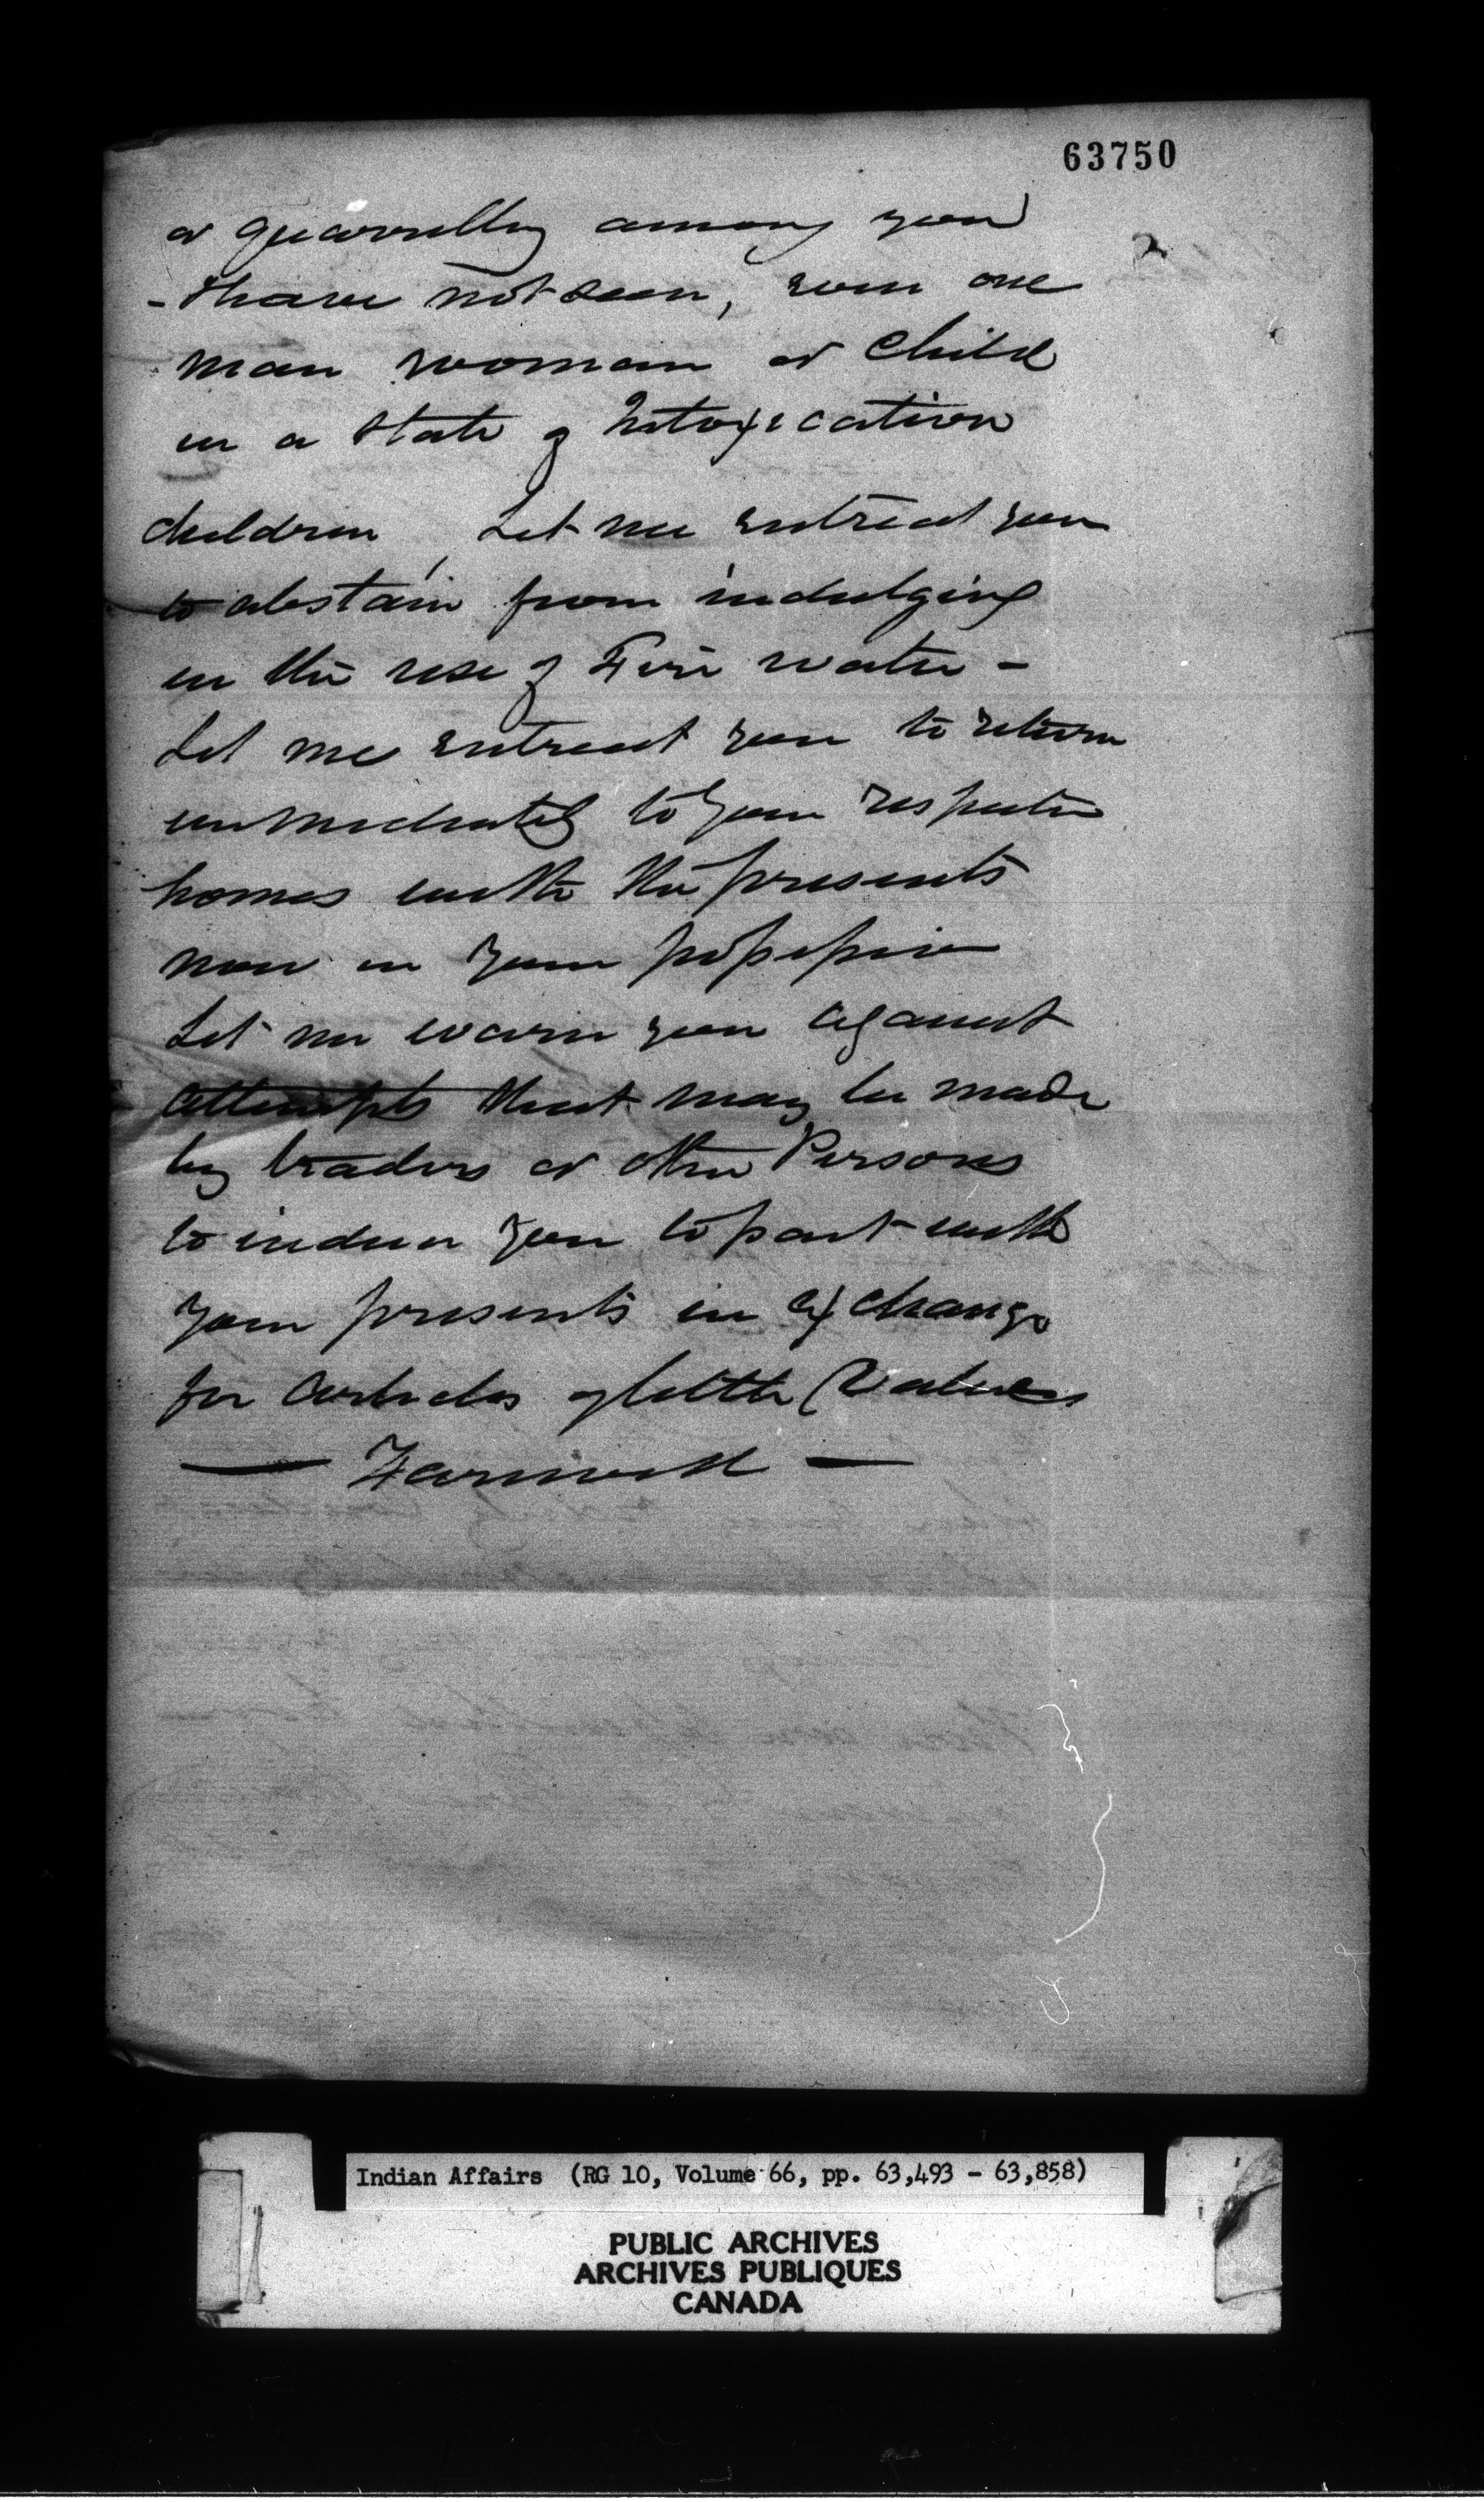 63750
or quarrelling among you
- I have not seen, even one
man woman or Child
in a state of Intoxication
Children, Let me entreat you
to abstain from indulging
in the use of Fire water -
Let me entreat you to return
immediately to your respective
homes with the presents
now in your possession
Let me warn you against
attempts that may be made
by traders or other Persons
to induce you to part with
your presents in exchange
for articles of little Value
— Farewell —
Indian Affairs (RG 10, Volume 66, pp. 63,493 - 63,858)
PUBLIC ARCHIVES
ARCHIVES PUBLIQUES
CANADA